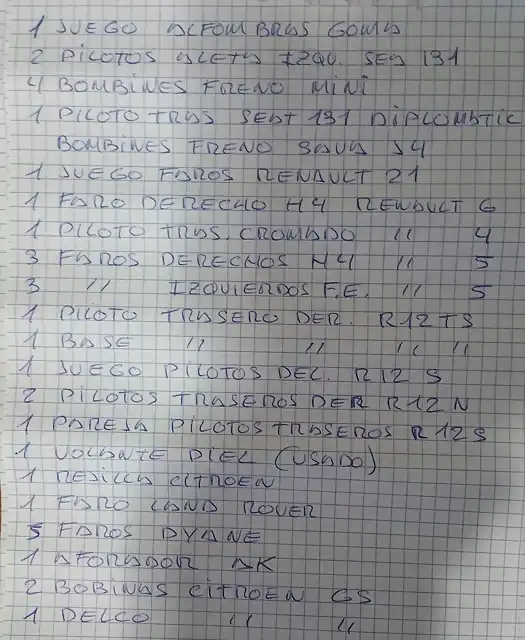 1 JUEGO ALFOMBRAS GOMA
2 PILOTOS ALETA IZQU. SEA 131
4 BOMBINES FRENO MINI
1 PILOTO TRAS SEAT 131 DIPLOMATIC
BOMBINES FRENO SAVA J4
1 JUEGO FAROS RENAULT 21
1 FARO DERECHO H4 RENAULT 6
1 PILOTO TRAS. CROMADO " 4
3 FAROS DERECHOS H4 " 5
3 " IZQUIERDOS F.E. " 5
1 PILOTO TRASERO DER. R12 TS
1 BASE " " " "
1 JUEGO PILOTOS DEL. R12 S
2 PILOTOS TRASEROS DER R12 N
1 PAREJA PILOTOS TRASEROS R12 S
1 VOLANTE PIEL (USADO)
1 REJILLA CITROEN
1 FARO LAND ROVER
5 FAROS DYANE
1 AFORADOR AK
2 BOBINAS CITROEN GS
1 DELCO " "